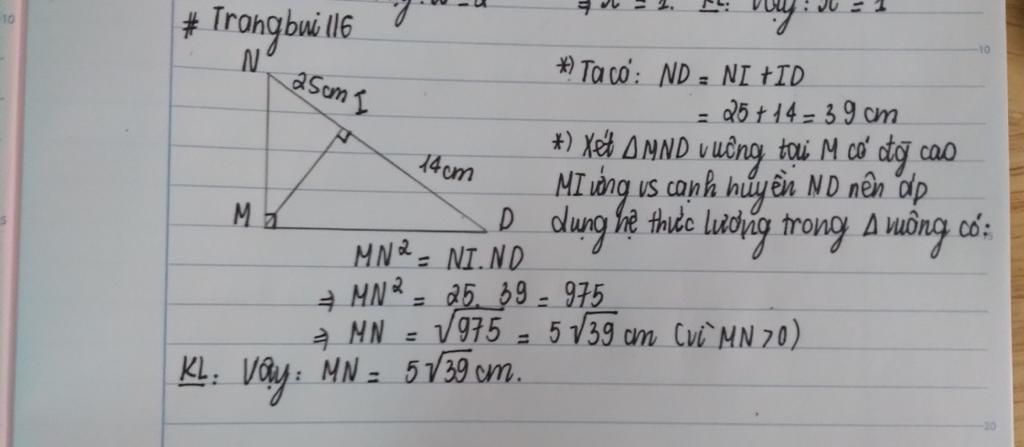 ⇒ x = 1. KL: Vậy: x = 1
# Trangbui116
N
25cm I
14cm
M
D
*) Ta có: ND = NI + ID
= 25 + 14 = 39 cm
*) Xét ΔMND vuông tại M có đg̃ cao
MI ứng vs cạnh huyền ND nên áp
dụng hệ thức lượng trong Δ vuông có:
MN² = NI. ND
⇒ MN² = 25. 39 = 975
⇒ MN = √975 = 5√39 cm (vì MN > 0)
KL: Vậy: MN = 5√39 cm.
10
10
5
20